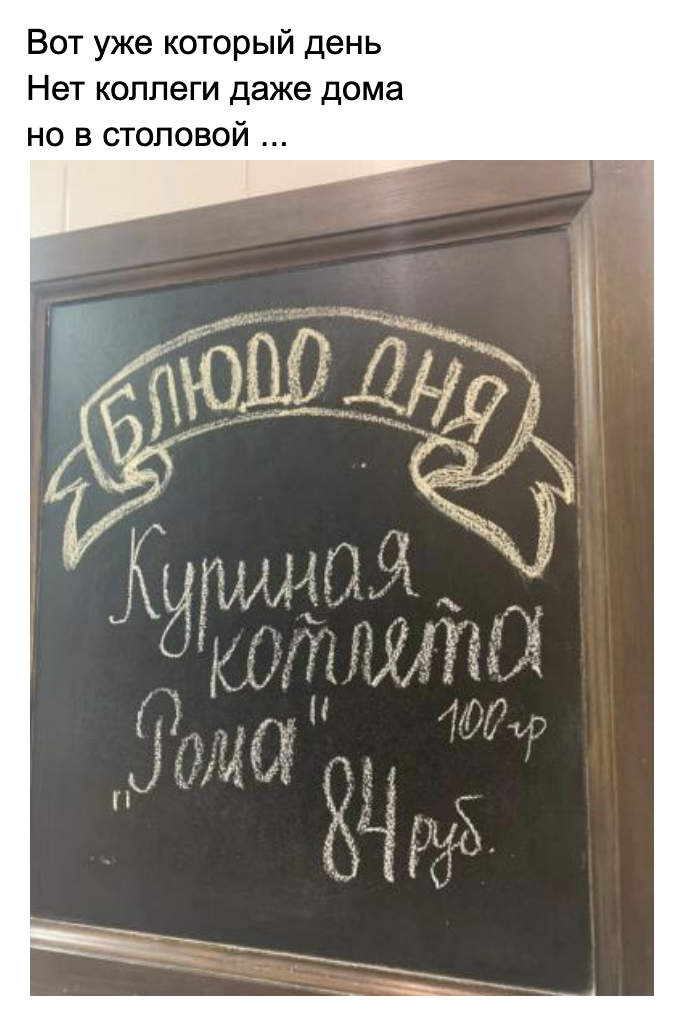 Вот уже который день
Нет коллеги даже дома
но в столовой ...
БЛЮДО ДНЯ
Куриная
котлета
"Рома" 100гр
84 руб.